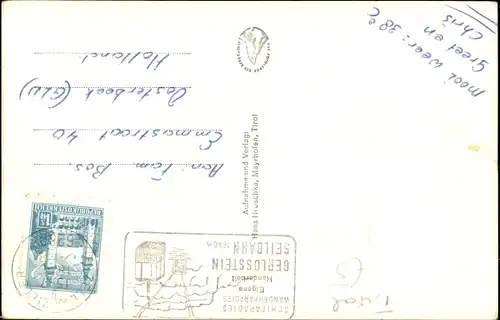 Mooi weer: 38 °C
Greet en
Chris
Aan Fam. Bos.
Emmastraat 40
Oosterbeek (GLD)
Holland
Aufnahme und Verlag:
Hans Hruschka, Mayrhofen, Tirol
REPUBLIK ÖSTERREICH
SCHIPARADIES
WANDERPARADIES
Eigene
GERLOSSTEIN
SEILBAHN 1640m
Tirol
(5